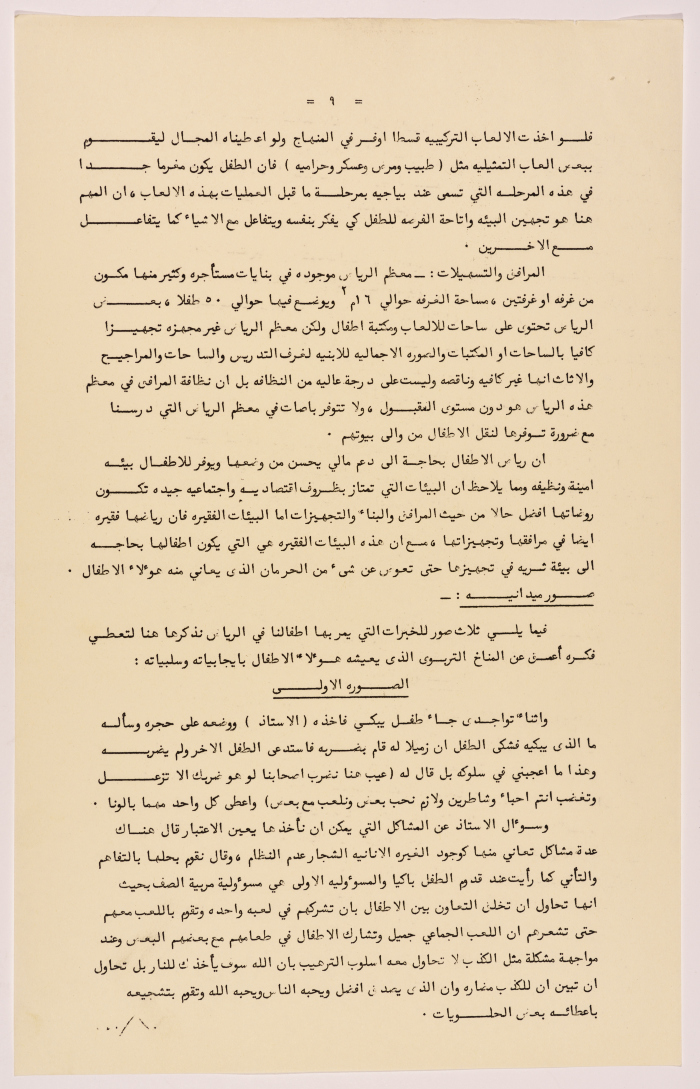 = ٩ =
فلــو اخذت الالعاب التركيبيه قسطا اوفر في المنهاج ولو اعطيناه المجال ليقــوم
ببعض العاب التمثيليه مثل ( طبيب ومرض وعسكر وحراميه ) فان الطفل يكون مغرما جــدا
في هذه المرحله التي تسمى عند بياجيه بمرحلة ما قبل العمليات بهذه الالعاب ، ان المهم
هنا هو تجهيز البيئه واتاحة الفرصه للطفل كي يفكر بنفسه ويتفاعل مع الاشياء كما يتفاعــل
مــع الاخــرين ٠
المرافق والتسهيلات : ــ معظم الرياض موجوده في بنايات مستأجره وكثير منها مكون
من غرفه او غرفتين ، مساحة الغرفه حوالي ١٦م٢ ويوضع فيها حوالي ٥٠ طفلا ، بعــض
الرياض تحتوى على ساحات للالعاب ومكتبة اطفال ولكن معظم الرياض غير مجهزه تجهيــزا
كافيا بالساحات او المكتبات والصوره الاجماليه للابنيه لغرف التدريس والساحات والمراجيح
والاثاث انها غير كافيه وناقصه وليست على درجة عاليه من النظافه بل ان نظافة المرافق في معظم
هذه الرياض هو دون مستوى المقبــول ، ولا تتوفر باصات في معظم الرياض التي درسنــا
مع ضرورة تــوفرها لنقل الاطفال من والى بيوتهم ٠
ان رياض الاطفال بحاجة الى دعم مالي يحسن من وضعها ويوفر للاطفــال بيئــه
امينة ونظيفه ومما يلاحظ ان البيئات التي تمتاز بظــروف اقتصاديــه واجتماعيه جيده تكــون
روضاتها افضل حالا من حيث المرافق والبناء والتجهيزات اما البيئات الفقيره فان رياضها فقيره
ايضا في مرافقها وتجهيزاتها ، مــع ان هذه البيئات الفقيره هي التي يكون اطفالها بحاجــه
الى بيئة ثــريه في تجهيزها حتى تعوض عن شيء من الحرمان الذى يعاني منه هؤلاء الاطفال ٠
صــور ميدانيــه : ــ
فيما يلــي ثلاث صور للخبرات التي يمر بها اطفالنا في الرياض نذكرها هنا لتعطــي
فكره أعمق عن المناخ التربوى الذى يعيشه هــؤلاء الاطفال بايجابياته وسلبياته :
الصــوره الاولــى
واثناء تواجدى جــاء طفــل يبكــي فاخذه ( الاستاذ ) ووضعه على حجره وسألــه
ما الذى يبكيه فشكى الطفل ان زميلا له قام بضــربه فاستدعى الطفل الاخر ولم يضربــه
وهذا ما اعجبني في سلوكه بل قال له ( عيب هنا نضرب اصحابنا لو هو ضربك الا تزعــل
وتغضب انتم احباء وشاطرين ولازم نحب بعض ونلعب مع بعض ) واعطى كل واحد منهما بالونا ٠
وسؤال الاستاذ عن المشاكل التي يمكن ان نأخذها بعين الاعتبار قال هنــاك
عدة مشاكل تعاني منها كوجود الغيره الانانيه الشجار عدم النظام ، وقال نقوم بحلها بالتفاهم
والتأني كما رأيت عند قدوم الطفل باكيا والمسؤوليه الاولى هي مسؤولية مربية الصف بحيث
انها تحاول ان تخلق التعاون بين الاطفال بان تشركهم في لعبه واحده وتقوم باللعب معهم
حتى تشعرهم ان اللعب الجماعي جميل وتشارك الاطفال في طعامهم مع بعضهم البعض وعند
مواجهة مشكلة مثل الكذب لا تحاول معه اسلوب الترهيب بان الله سوف يأخذك للنار بل تحاول
ان تبين ان للكذب مضاره وان الذى يصدق افضل ويحبه الناس ويحبه الله وتقوم بتشجيعه
باعطائــه بعض الحلــويات ٠
٠٠٠/١٠